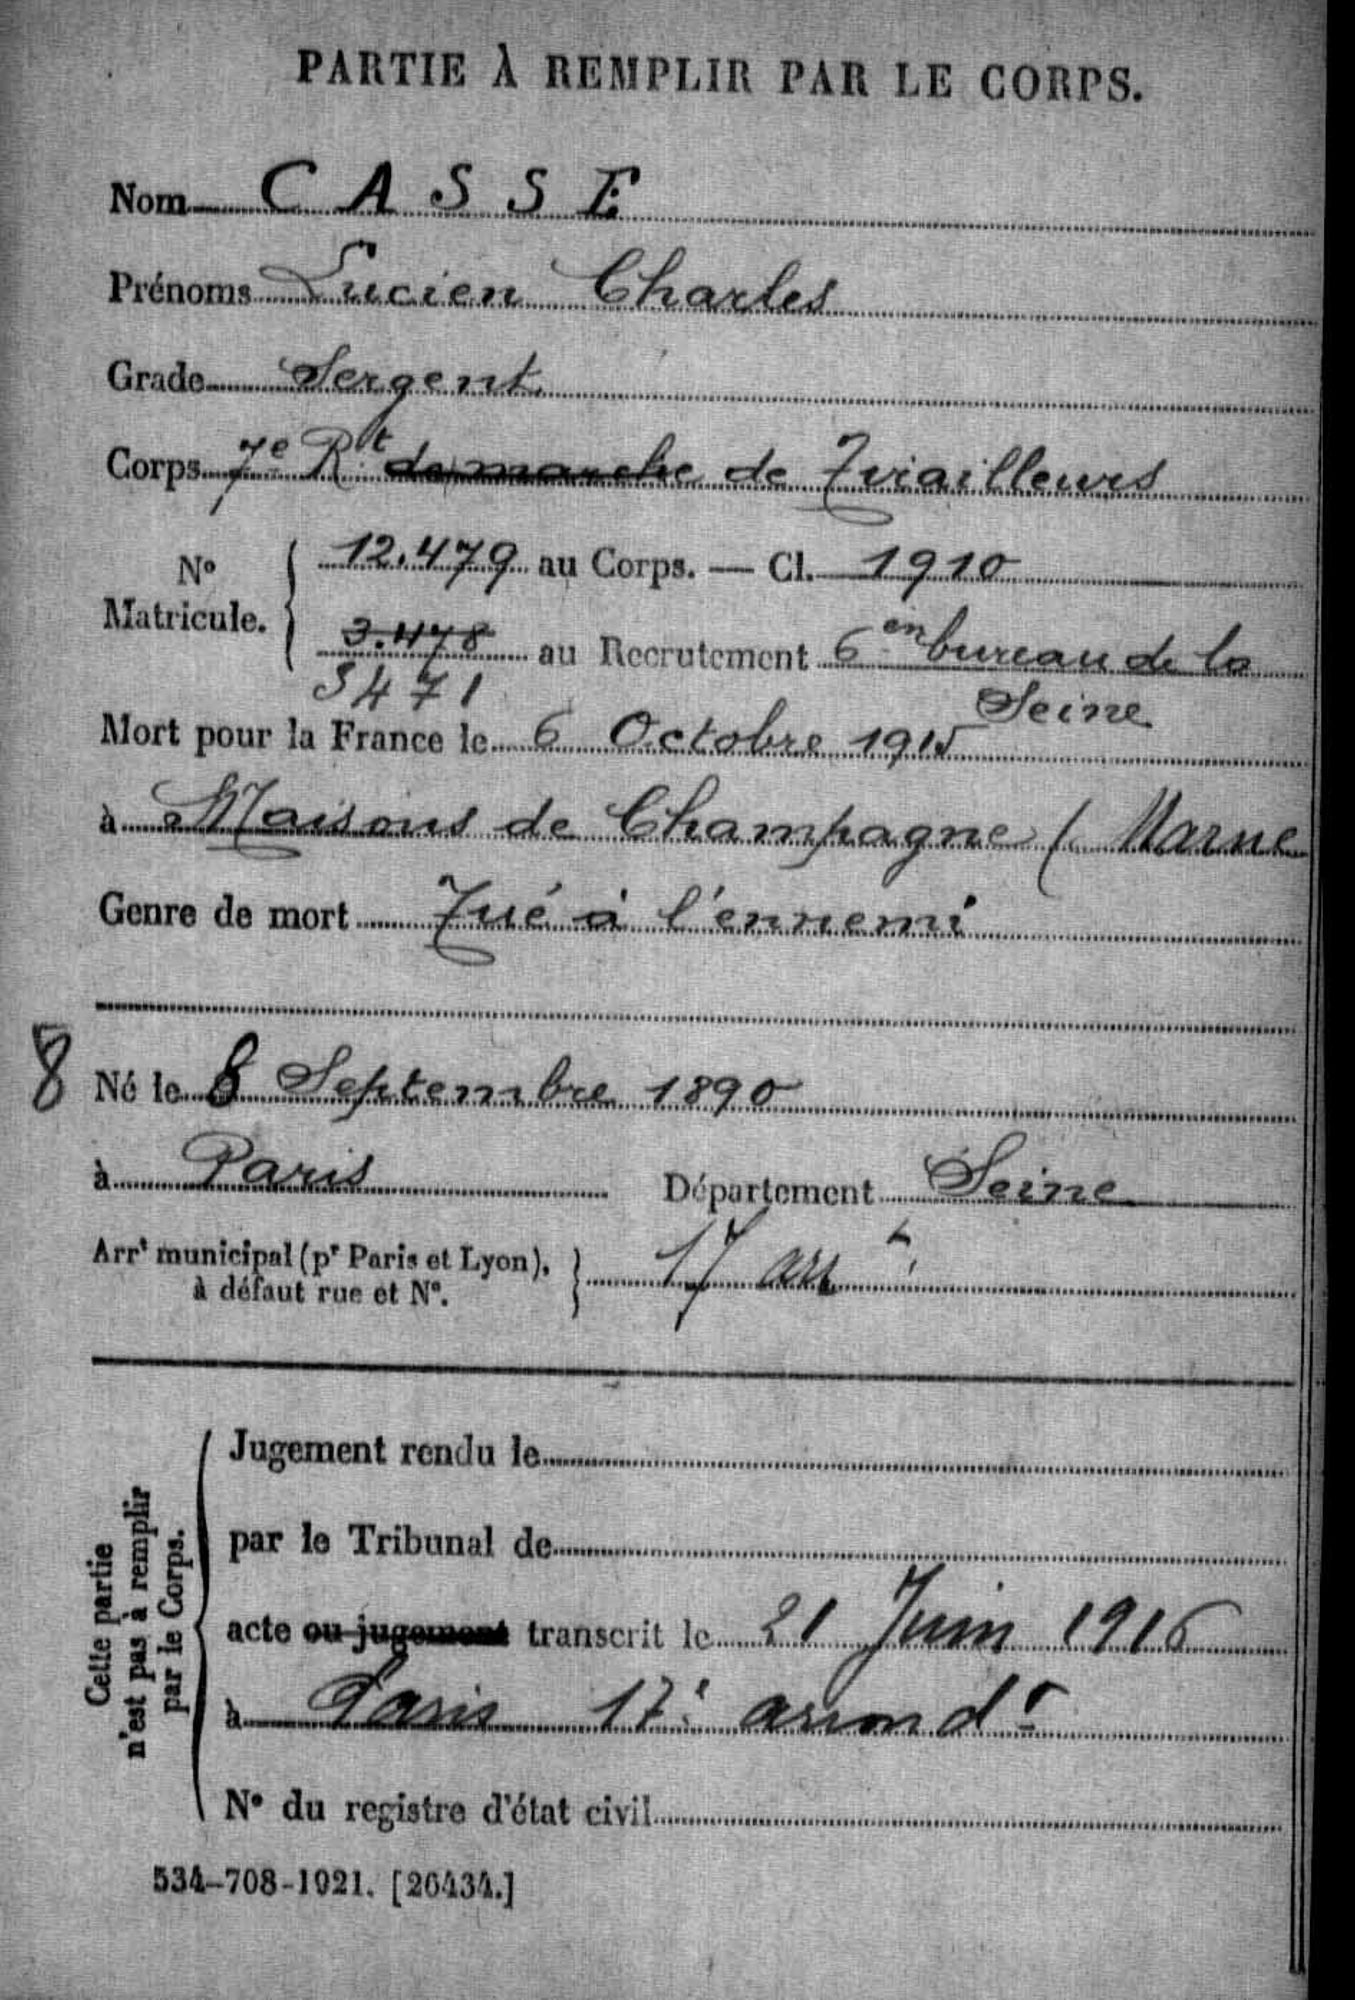 PARTIE À REMPLIR PAR LE CORPS.
Nom CASSE
Prénoms Lucien Charles
Grade Sergent
Corps 7e Rt de marche de Tirailleurs
No Matricule. 12.479 au Corps. — Cl. 1910
3.478 au Recrutement 6en bureau de la
3471 Seine
Mort pour la France le 6 Octobre 1915
à Maisons de Champagne (Marne
Genre de mort Tué à l'ennemi
8 Né le 8 Septembre 1890
à Paris Département Seine
Arrt municipal (pr Paris et Lyon),
à défaut rue et No. 17 arrt
Cette partie
n'est pas à remplir
par le Corps.
Jugement rendu le
par le Tribunal de
acte ou jugement transcrit le 21 Juin 1916
à Paris 17e arrondt
No du registre d'état civil
534-708-1921. [26434.]